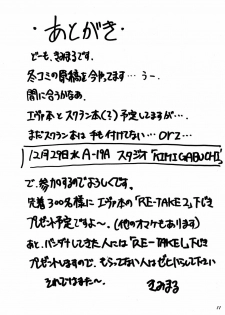 ・あとがき・
どーも、きみまるです。
冬コミの原稿を今やってます… うー.
間に合うかなぁ.
エヴァ本とスクラン本(?)予定してますが…
まだスクラン本は手も付けてない…orz…
12月29日水 A-19A スタジオ「KIMIGABUCHI」
で、参加するのでよろしくです。
先着300名様に エヴァ本の「RE-TAKE2」下じき
プレゼント予定ですよ〜。(他のオマケもあります)
あと、バンダナしてきた人には「RE-TAKE」下じき
プレゼントしますので、もらってない人はぜひとらして下さい
それではまた〜. きみまる